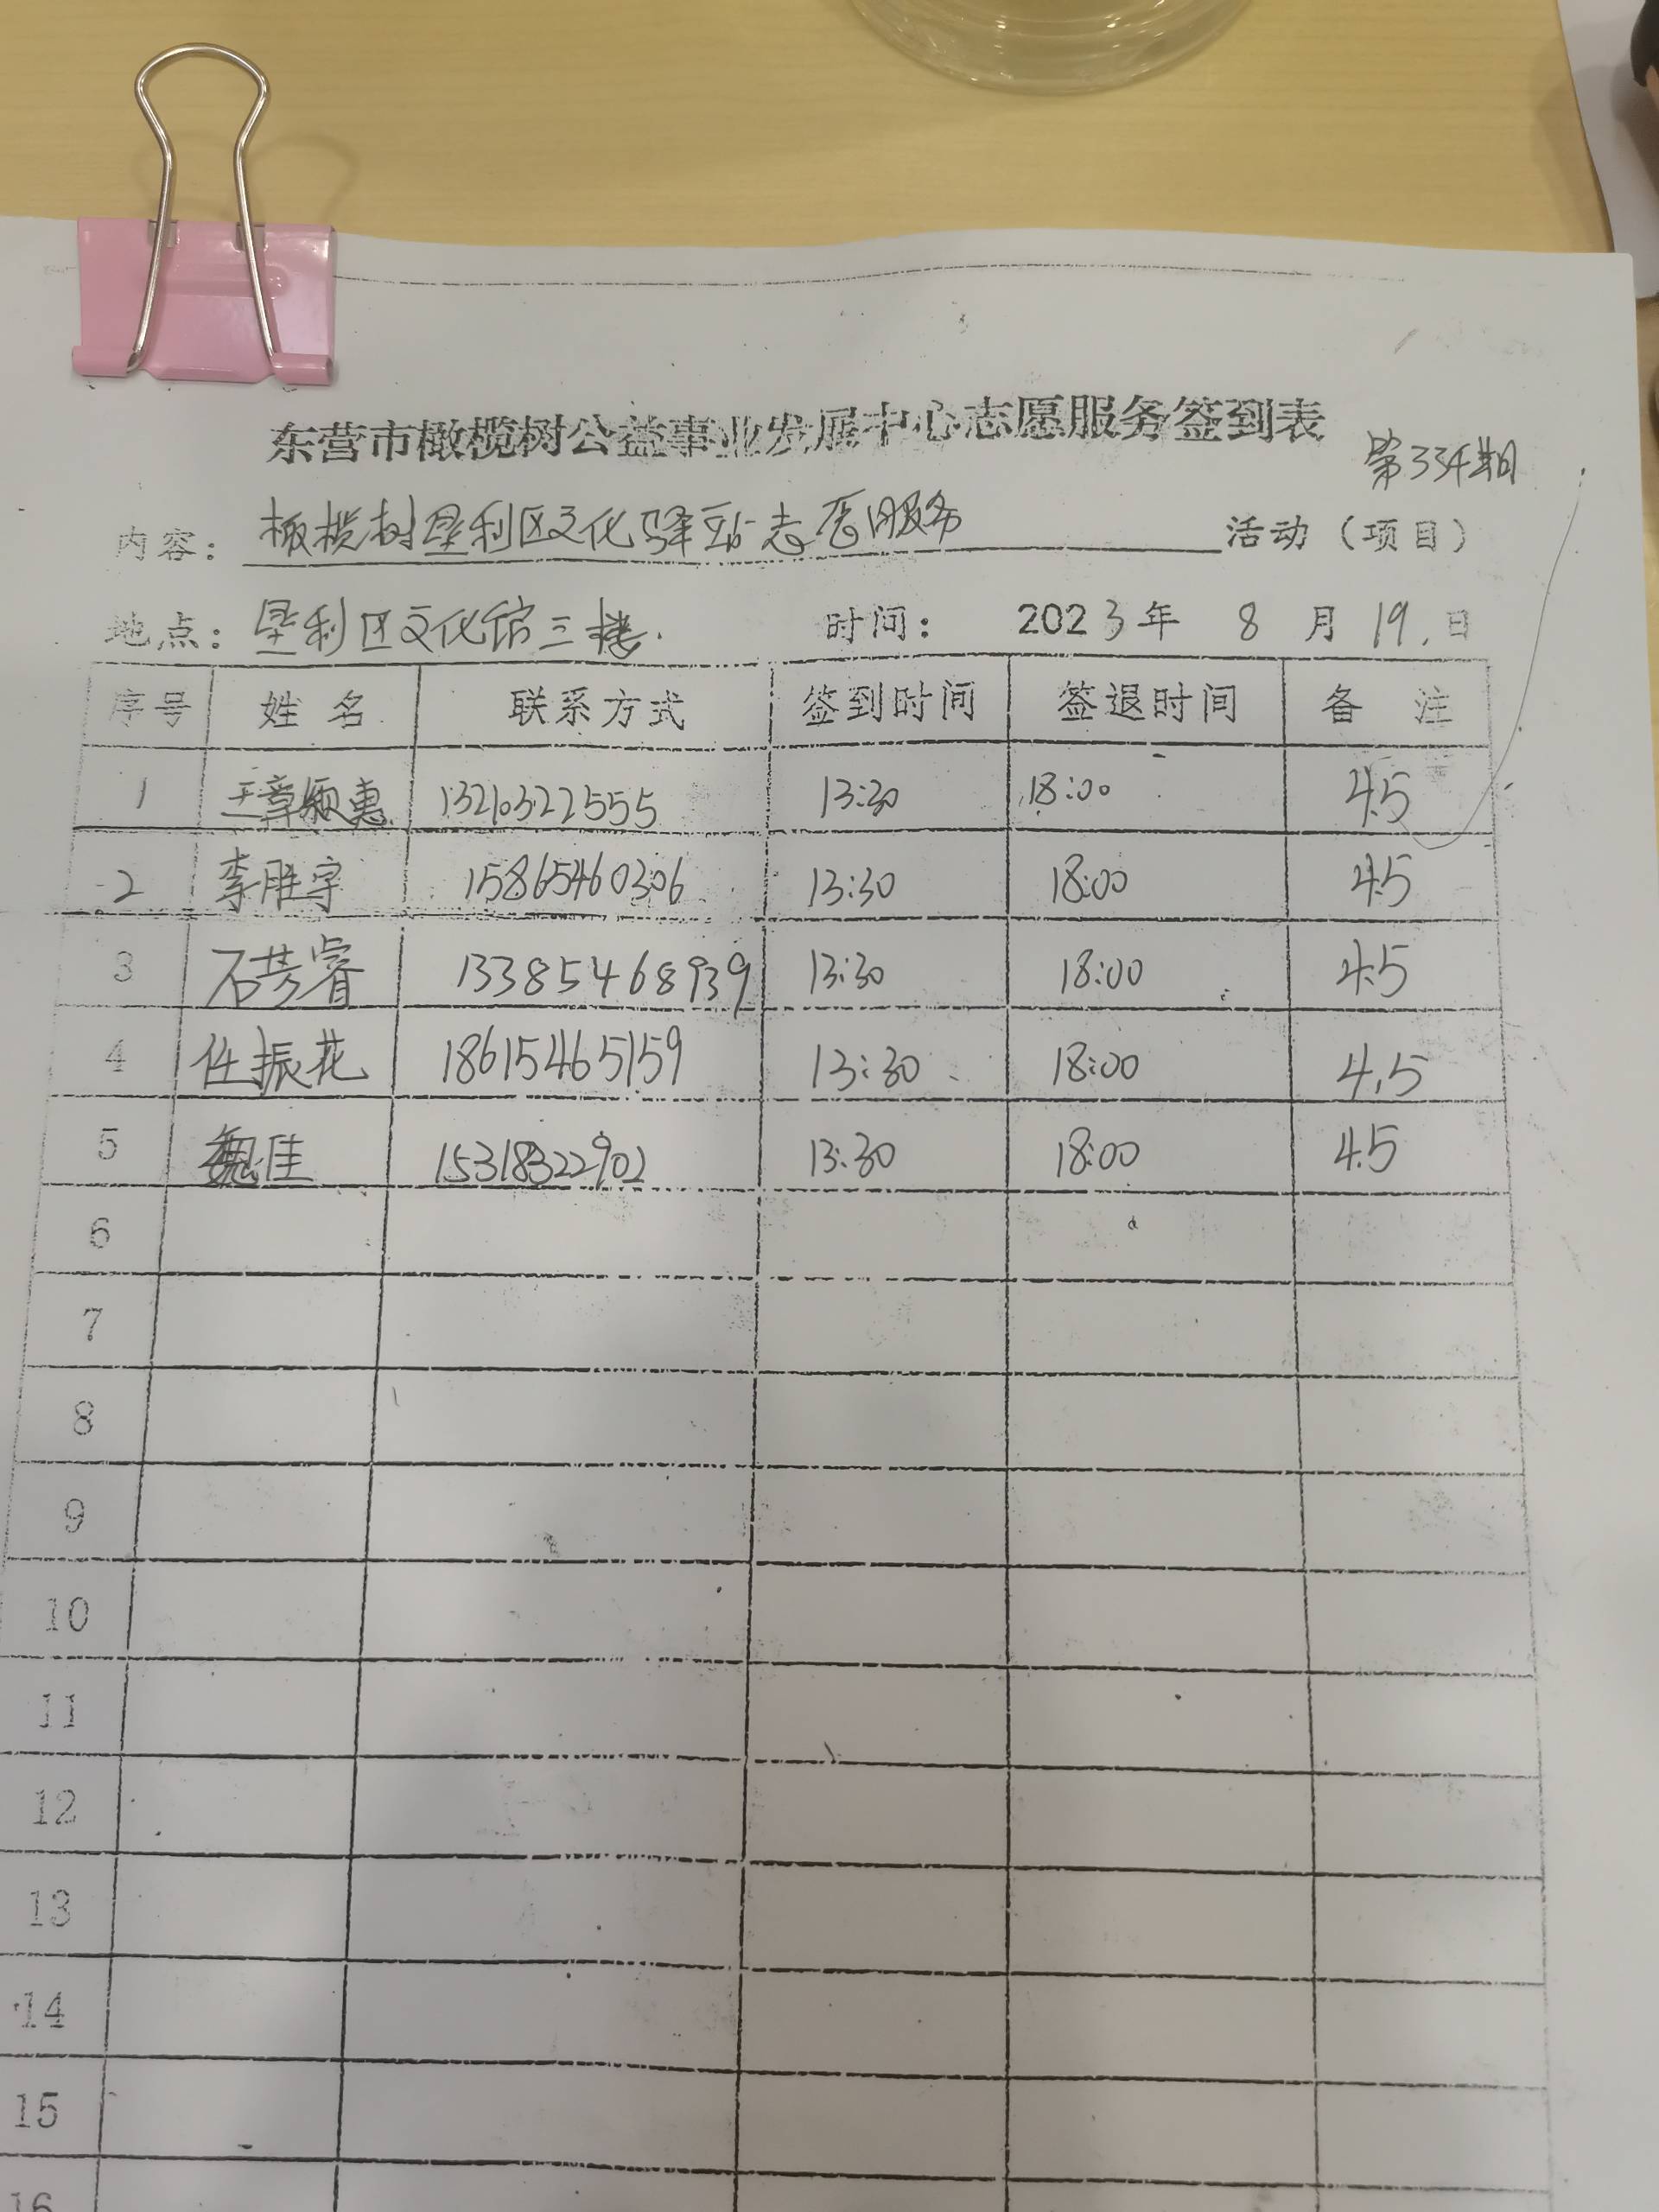 东营市橄榄树公益事业发展中心志愿服务签到表
第334期
内容: 橄榄树垦利区文化驿站志愿服务 活动（项目）
地点: 垦利区文化馆三楼. 时间: 2023年 8 月 19. 日
序号 姓名 联系方式 签到时间 签退时间 备注
1 王章颖惠 13210322555 13:30 18:00 4.5
2 李胜宇 15865460306 13:30 18:00 4.5
3 石芳睿 13385468939 13:30 18:00 4.5
4 任振花 18615465159 13:30 18:00 4.5
5 魏佳 15318322902 13:30 18:00 4.5
6
7
8
9
10
11
12
13
14
15
16